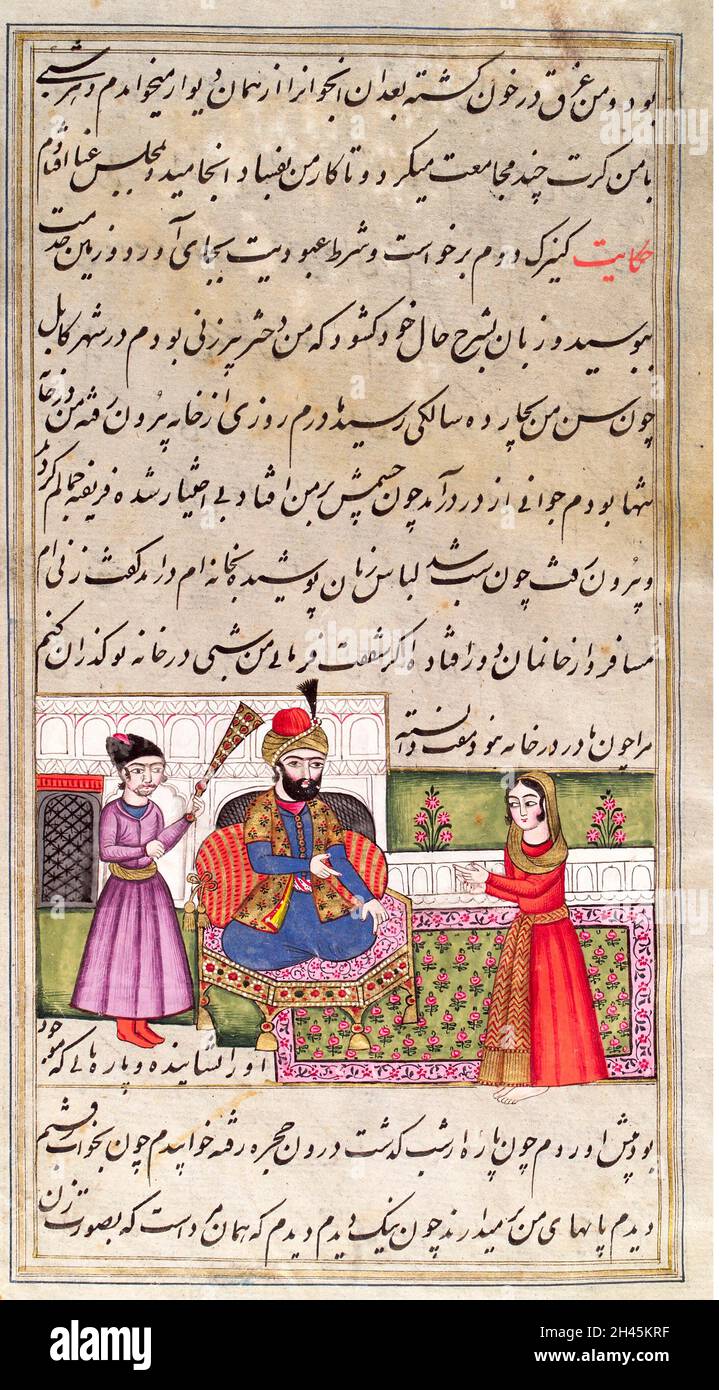 بود و من غرق در خون گشته بعد ازان انجوانرا از همان دیوار میخواندم و هر شبی
بامن کرت چند مجامعت میکرد و تا کار من بفساد انجامید و بمجلس افتادم
حکایت کنیزک دوم برخواست و شرط عبودیت بجای آورد و زمین خدمت
ببوسید و زبان بشرح حال خود کشود که من دختر پیرزنی بودم در شهر کابل
چون سن من بچارده سالکی رسید مادرم روزی از خانه بیرون رفته من در خانه
تنها بودم جوانی از در درآمد چون چشمش بر من افتاد بی اختیار شده فریفته جمالم گردید
و بیرون رفت چون شب شد لباس زنان پوشیده بخانه ام درامد گفت زنی ام
مسافر و از خانمان دور افتاده اگر شفقت فرمائی من شبی در خانه تو گذران کنم
مرا چون مادر در خانه نبود مغتنم دانسته
اورا نشانیده و پاره نانی که موجود
بود پیش اوردم چون پاره از شب گذشت درون حجره رفته خوابیدم چون بخواب رفتم
دیدم پاهای من بر میدارند چون نیک دیدم دیدم که همان مرد است که بصورت زن
alamy
Image ID: 2H45KRF
www.alamy.com